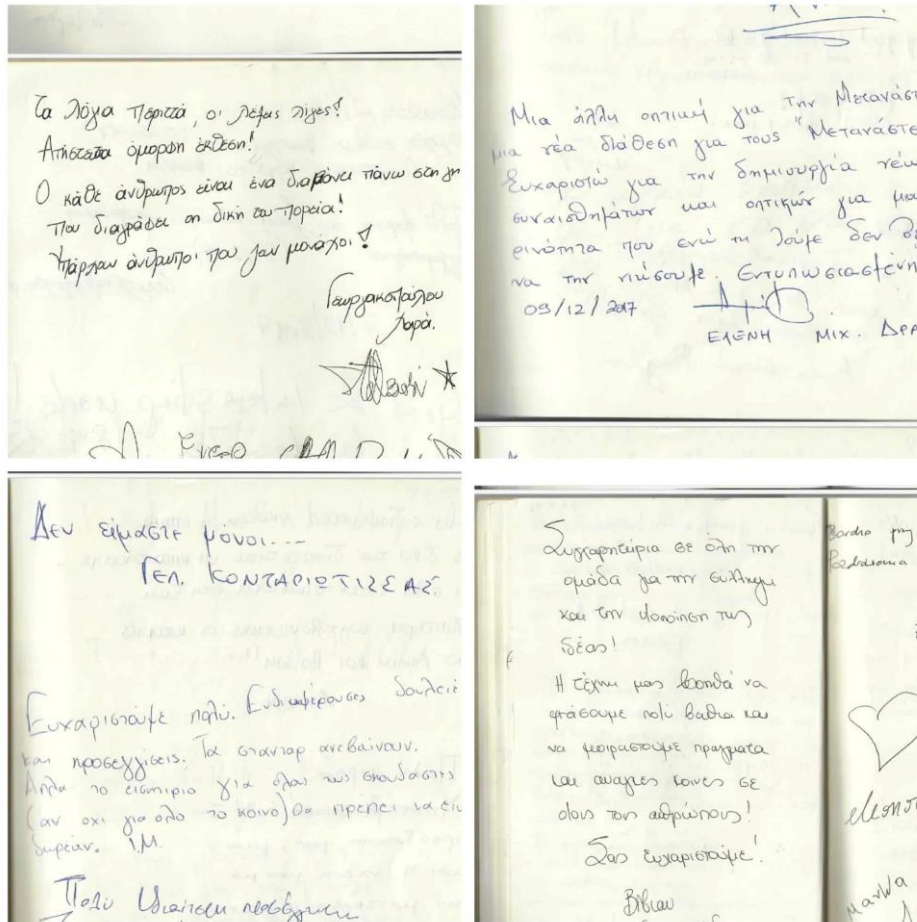 Τα λόγια περιττά, οι λέξεις λίγες!
Απίστευτα όμορφη έκθεση!
Ο κάθε άνθρωπος είναι ένα διαβάνει πάνω στη γη
Που διαγράφει τη δική του πορεία!
Υπάρχουν άνθρωποι που ζουν μονάχοι!
Γεωργακοπούλου
Χαρά.
Μια άλλη οπτική για την Μετανάστ
μια νέα διάθεση για τους "Μετανάστε
Ευχαριστώ για την δημιουργία νέω
συναισθημάτων και οπτικών για μια
ρινότητα που ενώ τη ζούμε δεν θέ
να την νιώσουμε. Εντυπωσιασμένη
09/12/2017
ΕΛΕΝΗ ΜΙΧ. ΔΡΑ
Δεν είμαστε μονοι...
ΓΕΛ. ΚΟΝΤΑΡΙΩΤΙΣΣΑΣ
Ευχαριστούμε πολύ. Ενδιαφέρουσες δουλειέ
και προσεγγίσεις. Τα στανταρ ανεβαίνουν.
Αλλα το εισιτηριο για ολους τους σπουδαστές
(αν οχι για ολο το κοινο) θα πρεπει να είν
δωρεαν. Ι.Μ.
Πολύ ιδιαίτερη προσέγγιση
Συγχαρητήρια σε όλη την
ομάδα για την σύλληψη
και την υλοποίηση της
ιδέας!
Η τέχνη μας βοηθά να
φτάσουμε πολύ βαθια και
να μοιραστούμε πραγματα
και αναγκες κοινες σε
όλους τους ανθρώπους!
Σας ευχαριστούμε!
Βίβιαν